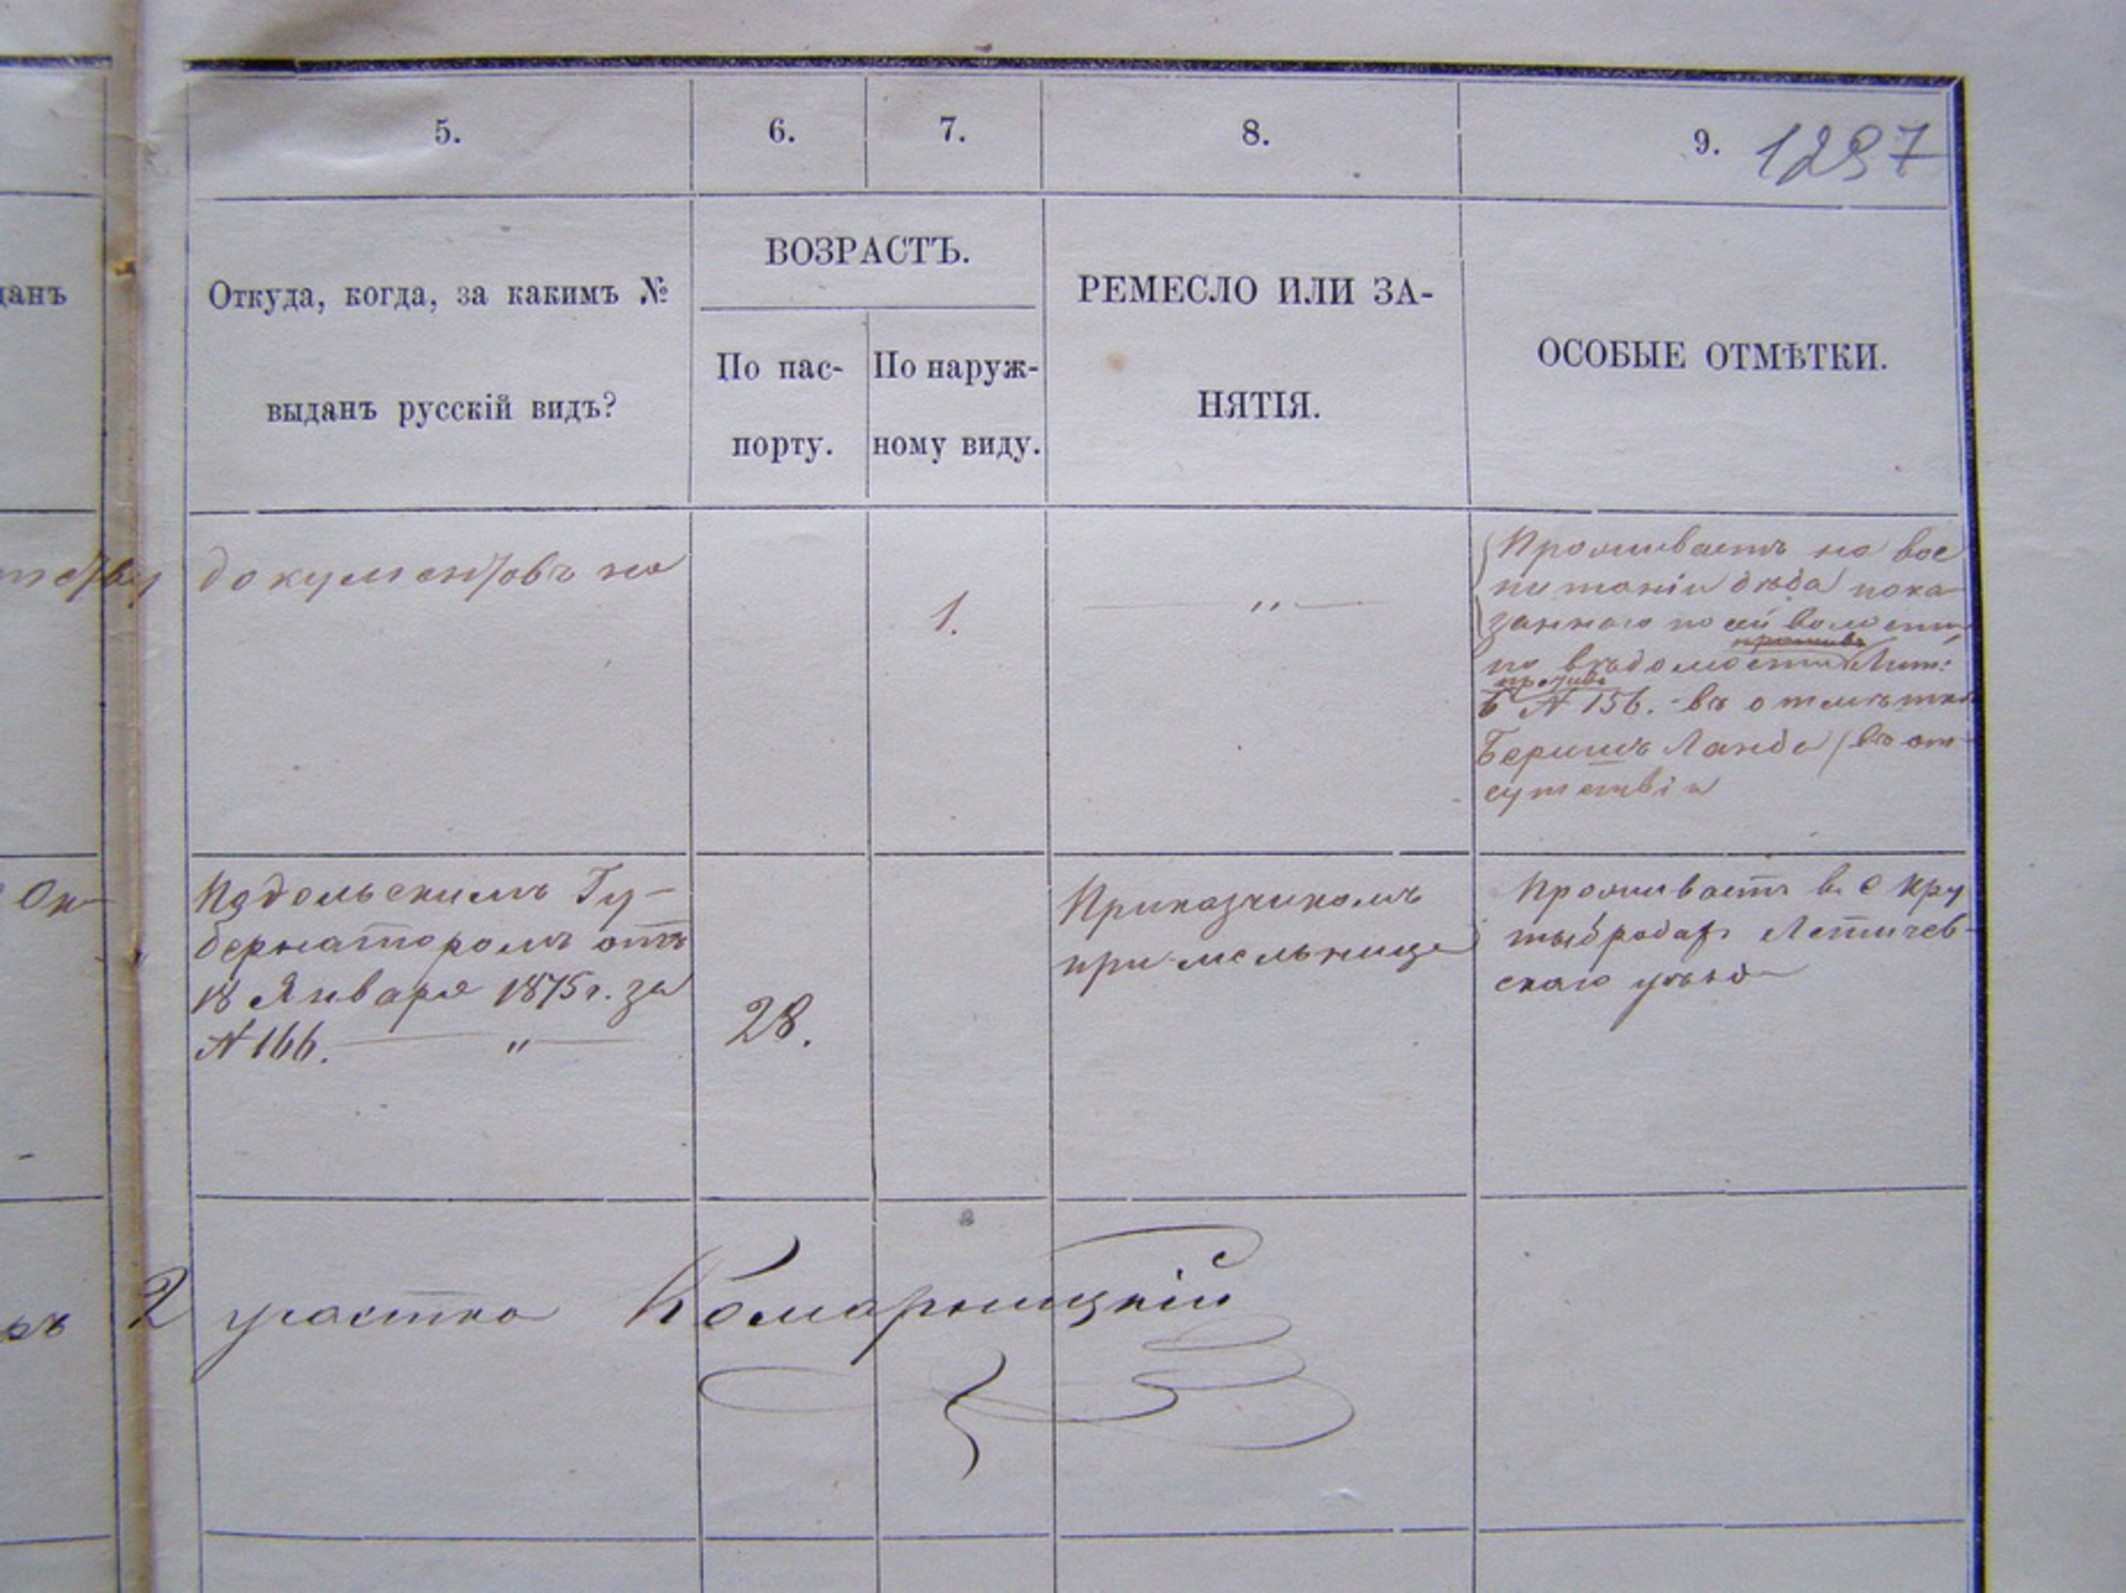 5.
6.
7.
8.
9.
1297
данъ
Откуда, когда, за какимъ №
выданъ русскій видъ?
ВОЗРАСТЪ.
По пас-
порту.
По наруж-
ному виду.
РЕМЕСЛО ИЛИ ЗА-
НЯТІЯ.
ОСОБЫЕ ОТМѢТКИ.
документовъ не
1.
"
Проживаетъ на вос
питаніи дѣда пока
заннаго по сей волости
по вѣдомости Лит:
противъ
Б № 156. въ отмѣтке
Беришъ Ланда въ от
сутствіи
Ок
Подольскимъ Гу-
бернаторомъ отъ
18 Января 1875 г. за
№ 166. "
28.
Приказчикомъ
при мельнице
Проживаетъ в. с Кру
тыбродах Летичев-
скаго уѣзда
ръ 2 участка Комарницкій